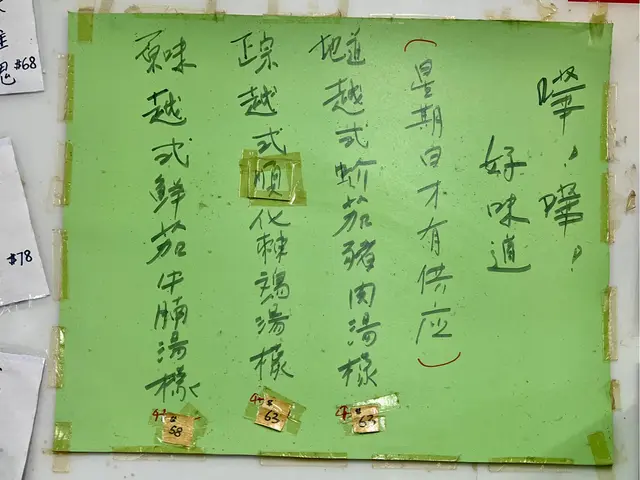 嘩，嘩，
好味道
(星期日才有供应)
地道越式蚧茄豬肉湯檬
$63
正宗越式順化辣鷄湯檬
$63
原味越式鮮茄牛腩湯檬
$58
$68
$78